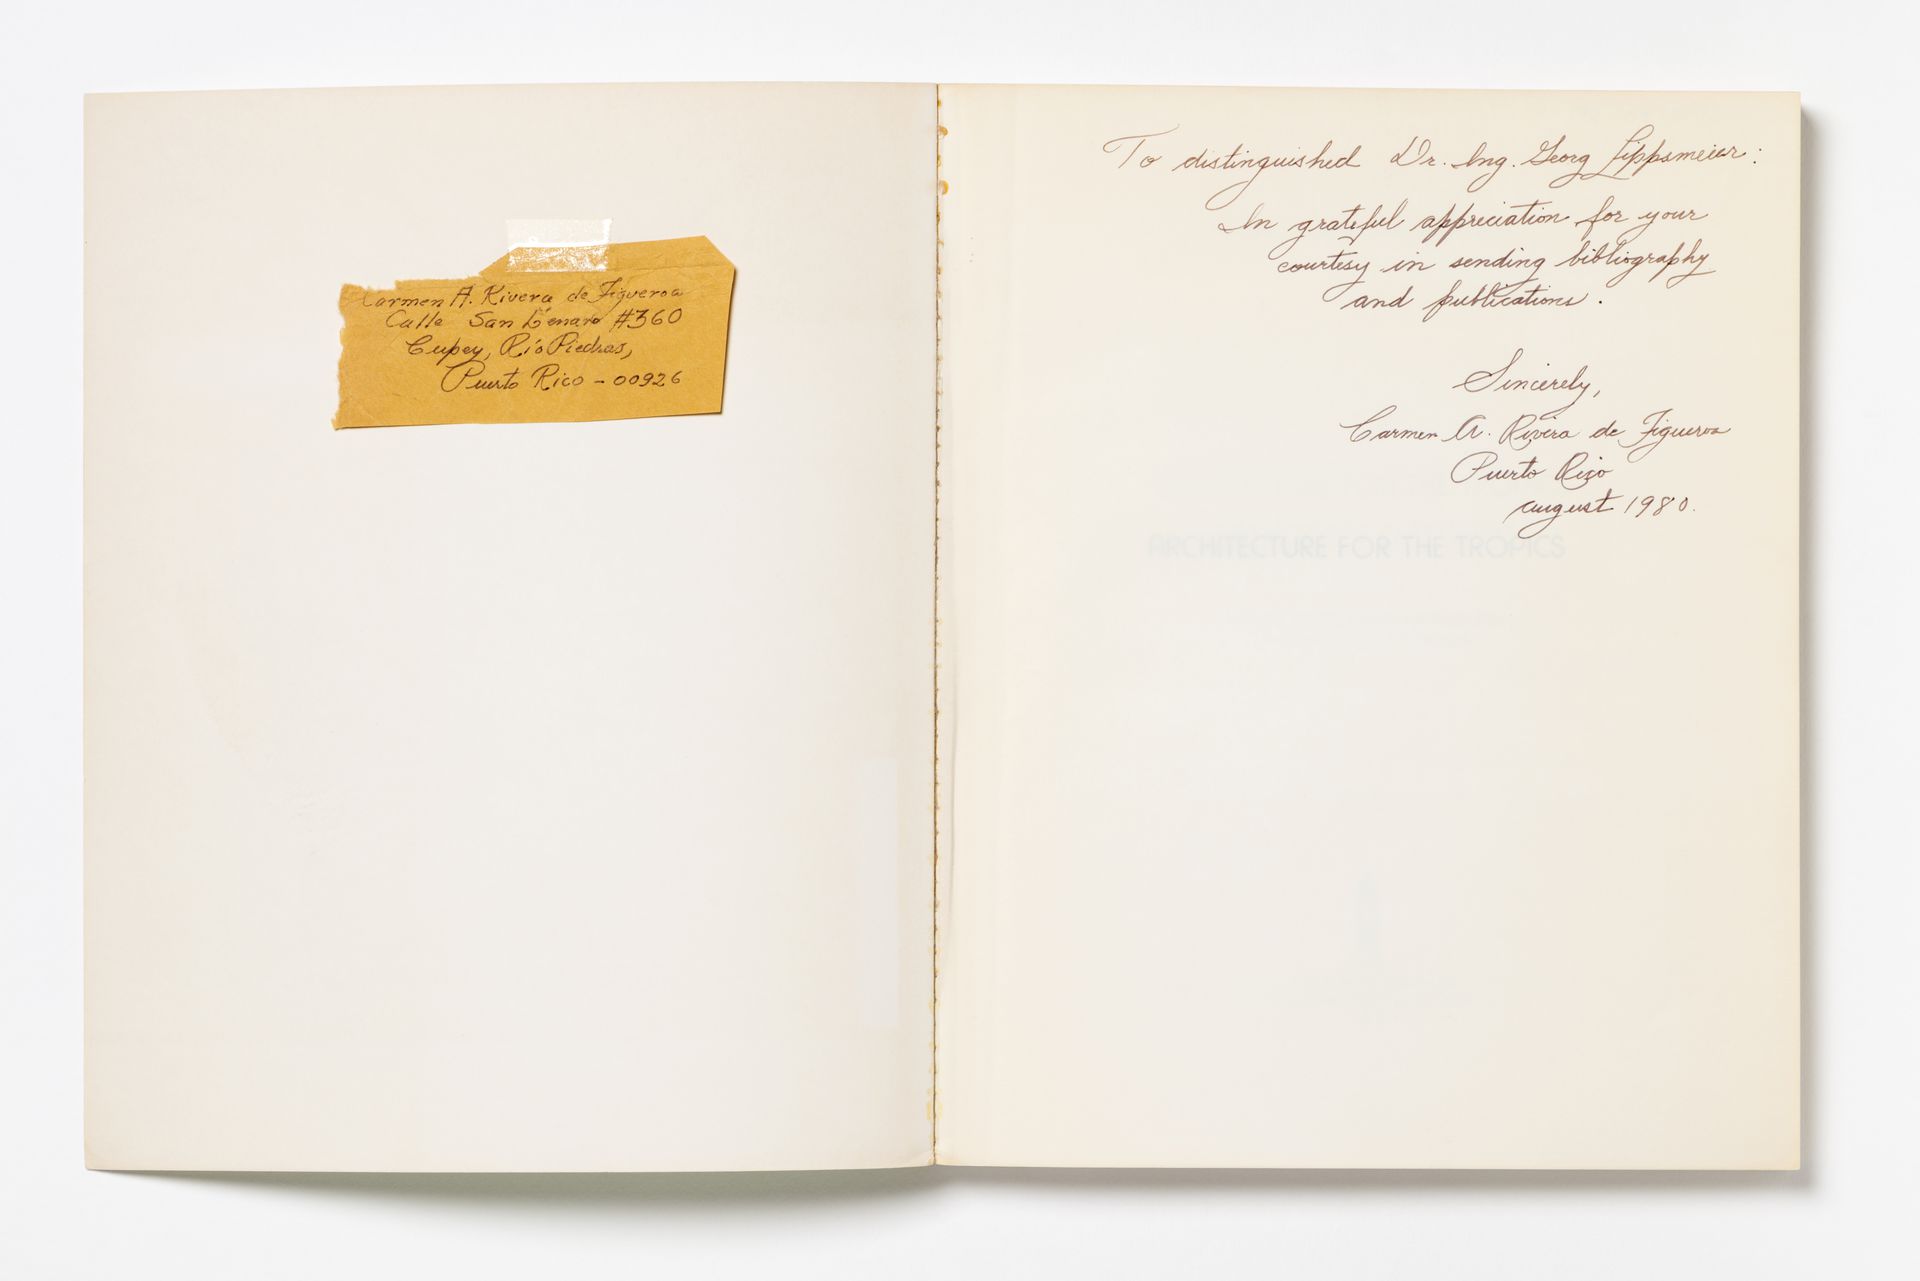 Carmen A. Rivera de Figueroa
Calle San Genaro #360
Cupey, Río Piedras,
Puerto Rico - 00926
To distinguished Dr. Ing. Georg Lippsmeier:
In grateful appreciation for your
courtesy in sending bibliography
and publications.
Sincerely,
Carmen A. Rivera de Figueroa
Puerto Rico
august 1980.
ARCHITECTURE FOR THE TROPICS